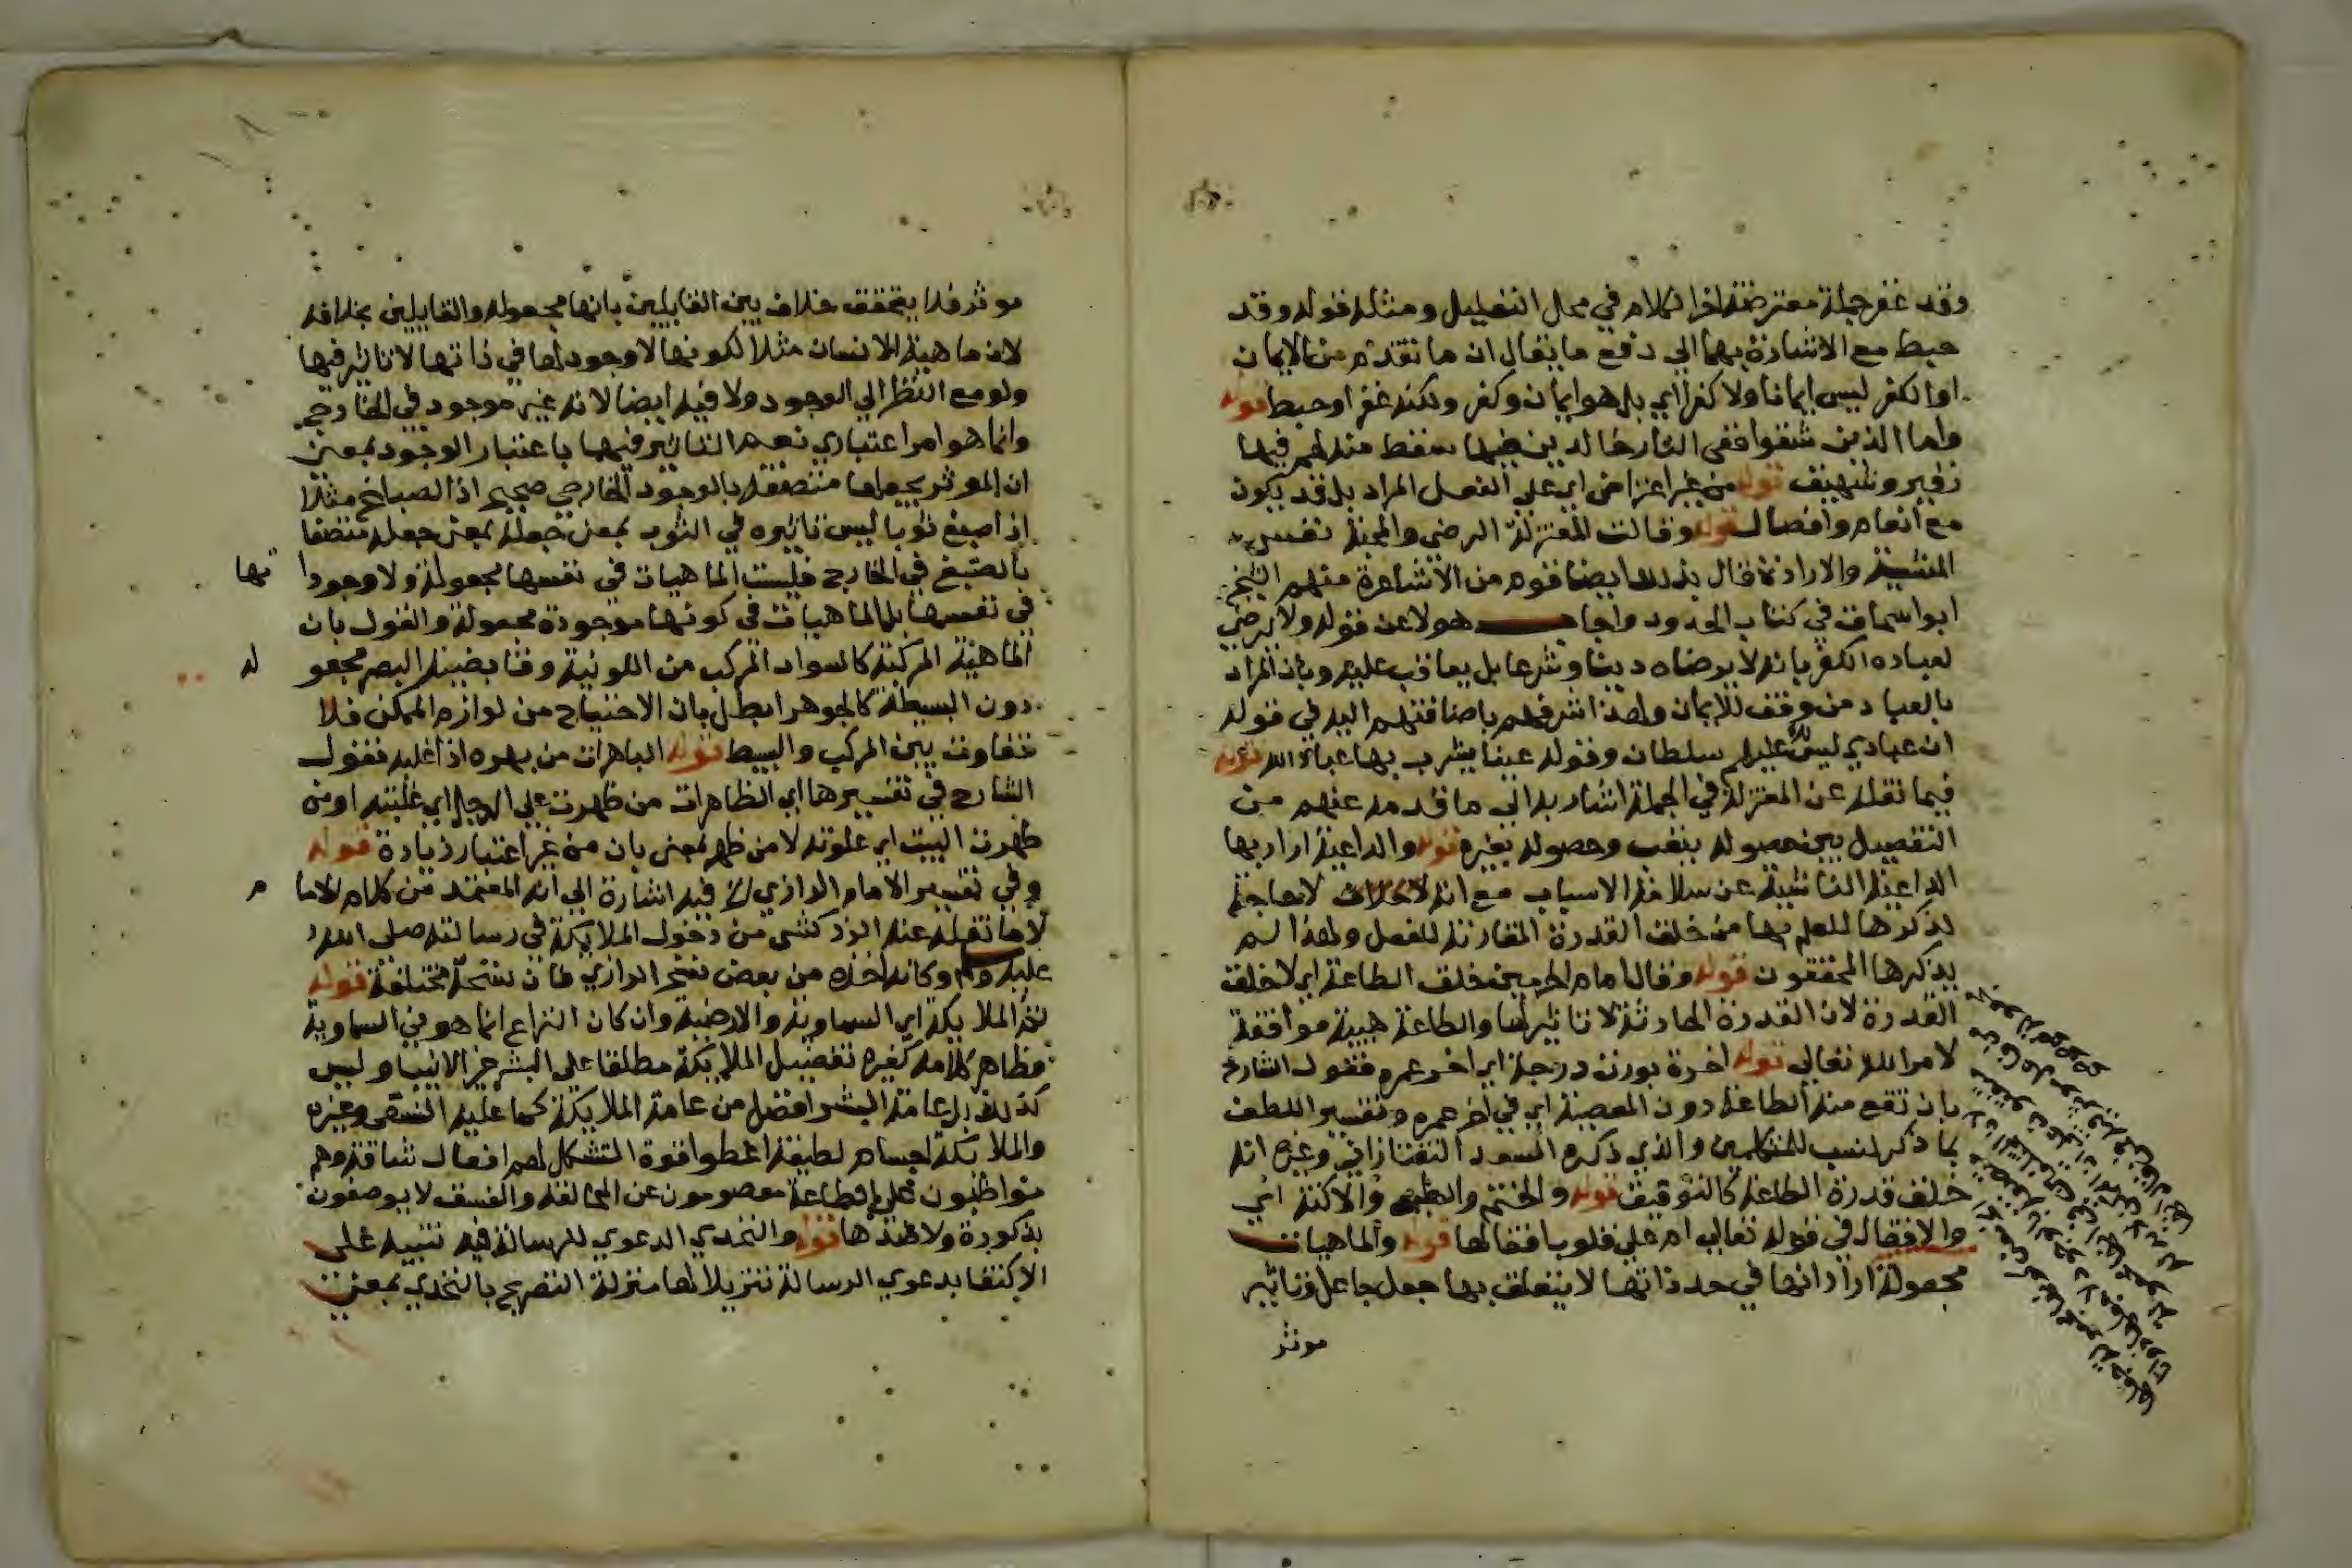 وقد غفر جملة معترضة اخر الكلام في محل التعليل ومثله قوله وقد
حبط مع الاشارة بهما الى دفع ما يقال ان ما تقدم من الايمان
او الكفر ليس ايمانا ولا كفرا اي بل هو ايمان وكفر ولكنه غفر او حبط قوله
واما الذين شقوا ففي النار خالدين فيها سقط منه لهم فيها
زفير وشهيق قوله من غير اعتراض اي على الفعل المراد بل قد يكون
مع انعام وافضال قوله وقالت المعتزلة الرضى والمحبة نفس
المشيئة والارادة قال بذلك ايضا قوم من الاشاعرة منهم الشيخ
ابو اسحاق في كتاب الحدود واجاب هولا عن قوله ولا يرضى
لعباده الكفر بانه لا يرضاه دينا وشرعا بل يعاقب عليه وبان المراد
بالعباد من وفق للايمان ولهذا شرفهم باضافتهم اليه في قوله
ان عبادي ليس لك عليهم سلطان وقوله عينا يشرب بها عباد الله قوله
فيما نقله عن المعتزلة في الجملة اشار به الى ما قدمه عنهم من
التفصيل بين حصوله بتعب وحصوله بغيره قوله والداعية اراد بها
الداعية الناشية عن سلامة الاسباب مع انه لا حاجة
لذكرها للعلم بها من خلق القدرة المقارنة للفعل ولهذا لم
يذكرها المحققون قوله وقال امام الحرمين خلق الطاعة اي لا خلق
القدرة لان القدرة الحادثة لا تاثير لها والطاعة هيية موافقة
لامر الله تعالى قوله اخرة بوزن درجة اي اخر عمره فقول الشارح
بان تقع منه الطاعة دون المعصية اي في اخر عمره وتفسير اللطف
بما ذكر انسب للمتكلمين والذي ذكره السعد التفتازاني وغيره انه
خلق قدرة الطاعة كالتوفيق قوله والختم والطبع والاكنة اي
والاقفال في قوله تعالى ام على قلوب اقفالها قوله والماهيات
مجعولة اراد انها في حد ذاتها لا يتعلق بها جعل جاعل وتاثير
موثر
موثر فلا يتحقق خلاف بين القايلين بانها مجعولة والقايلين بخلافه
لان ماهية الانسان مثلا لكونها لا وجود لها في ذاتها لا تاثير فيها
ولو مع النظر الى الوجود ولا فيه ايضا لانه غير موجود في الخارج
وانما هو امر اعتباري نعم التاثير فيها باعتبار الوجود بمعنى
ان الموثر يجعلها متصفة بالوجود الخارجي صحيح اذ الصباغ مثلا
اذا صبغ ثوبا ليس تاثيره في الثوب بمعنى جعله بمعنى جعله متصفا
بالصبغ في الخارج فليست الماهيات في نفسها مجعولة ولا وجوداتها
في نفسها بل الماهيات في كونها موجودة مجعولة والقول بان
الماهية المركبة كالسواد المركب من اللونية وقابضية البصر مجعولة
دون البسيطة كالجوهر ابطل بان الاحتياج من لوازم الممكن فلا
تفاوت بين المركب والبسيط قوله الباهرات من بهره اذا غلبه فقول
الشارح في تفسيرها اي الظاهرات من ظهرت على الرجل اي غلبته او من
ظهرت البيت اي علوته لا من ظهر بمعنى بان من غير اعتبار زيادة قوله
وفي تفسير الامام الرازي فيه اشارة الى انه المعتمد من كلام الامام
لا ما نقله عنه الزركشي من دخول الملايكة في رسالته صلى الله
عليه وسلم وكانه اخذه من بعض نسخ الرازي فان نسخه مختلفة قوله
ثم الملايكة اي السماوية والارضية وان كان النزاع انما هو في السماوية
وظاهر كلامه كغيره تفضيل الملايكة مطلقا على البشر غير الانبيا وليس
كذلك بل عامة البشر افضل من عامة الملايكة كما عليه النسفي وغيره
والملايكة اجسام لطيفة اعطوا قوة التشكل لهم افعال شاقة وهم
مواظبون على الطاعة معصومون عن المخالفة والفسق لا يوصفون
بذكورة ولا قوله والتحدي الدعوي للرسالة فيه تنبيه على
الاكتفا بدعوي الرسالة تنزيلا لها منزلة التصريح بالتحدي بمعنى